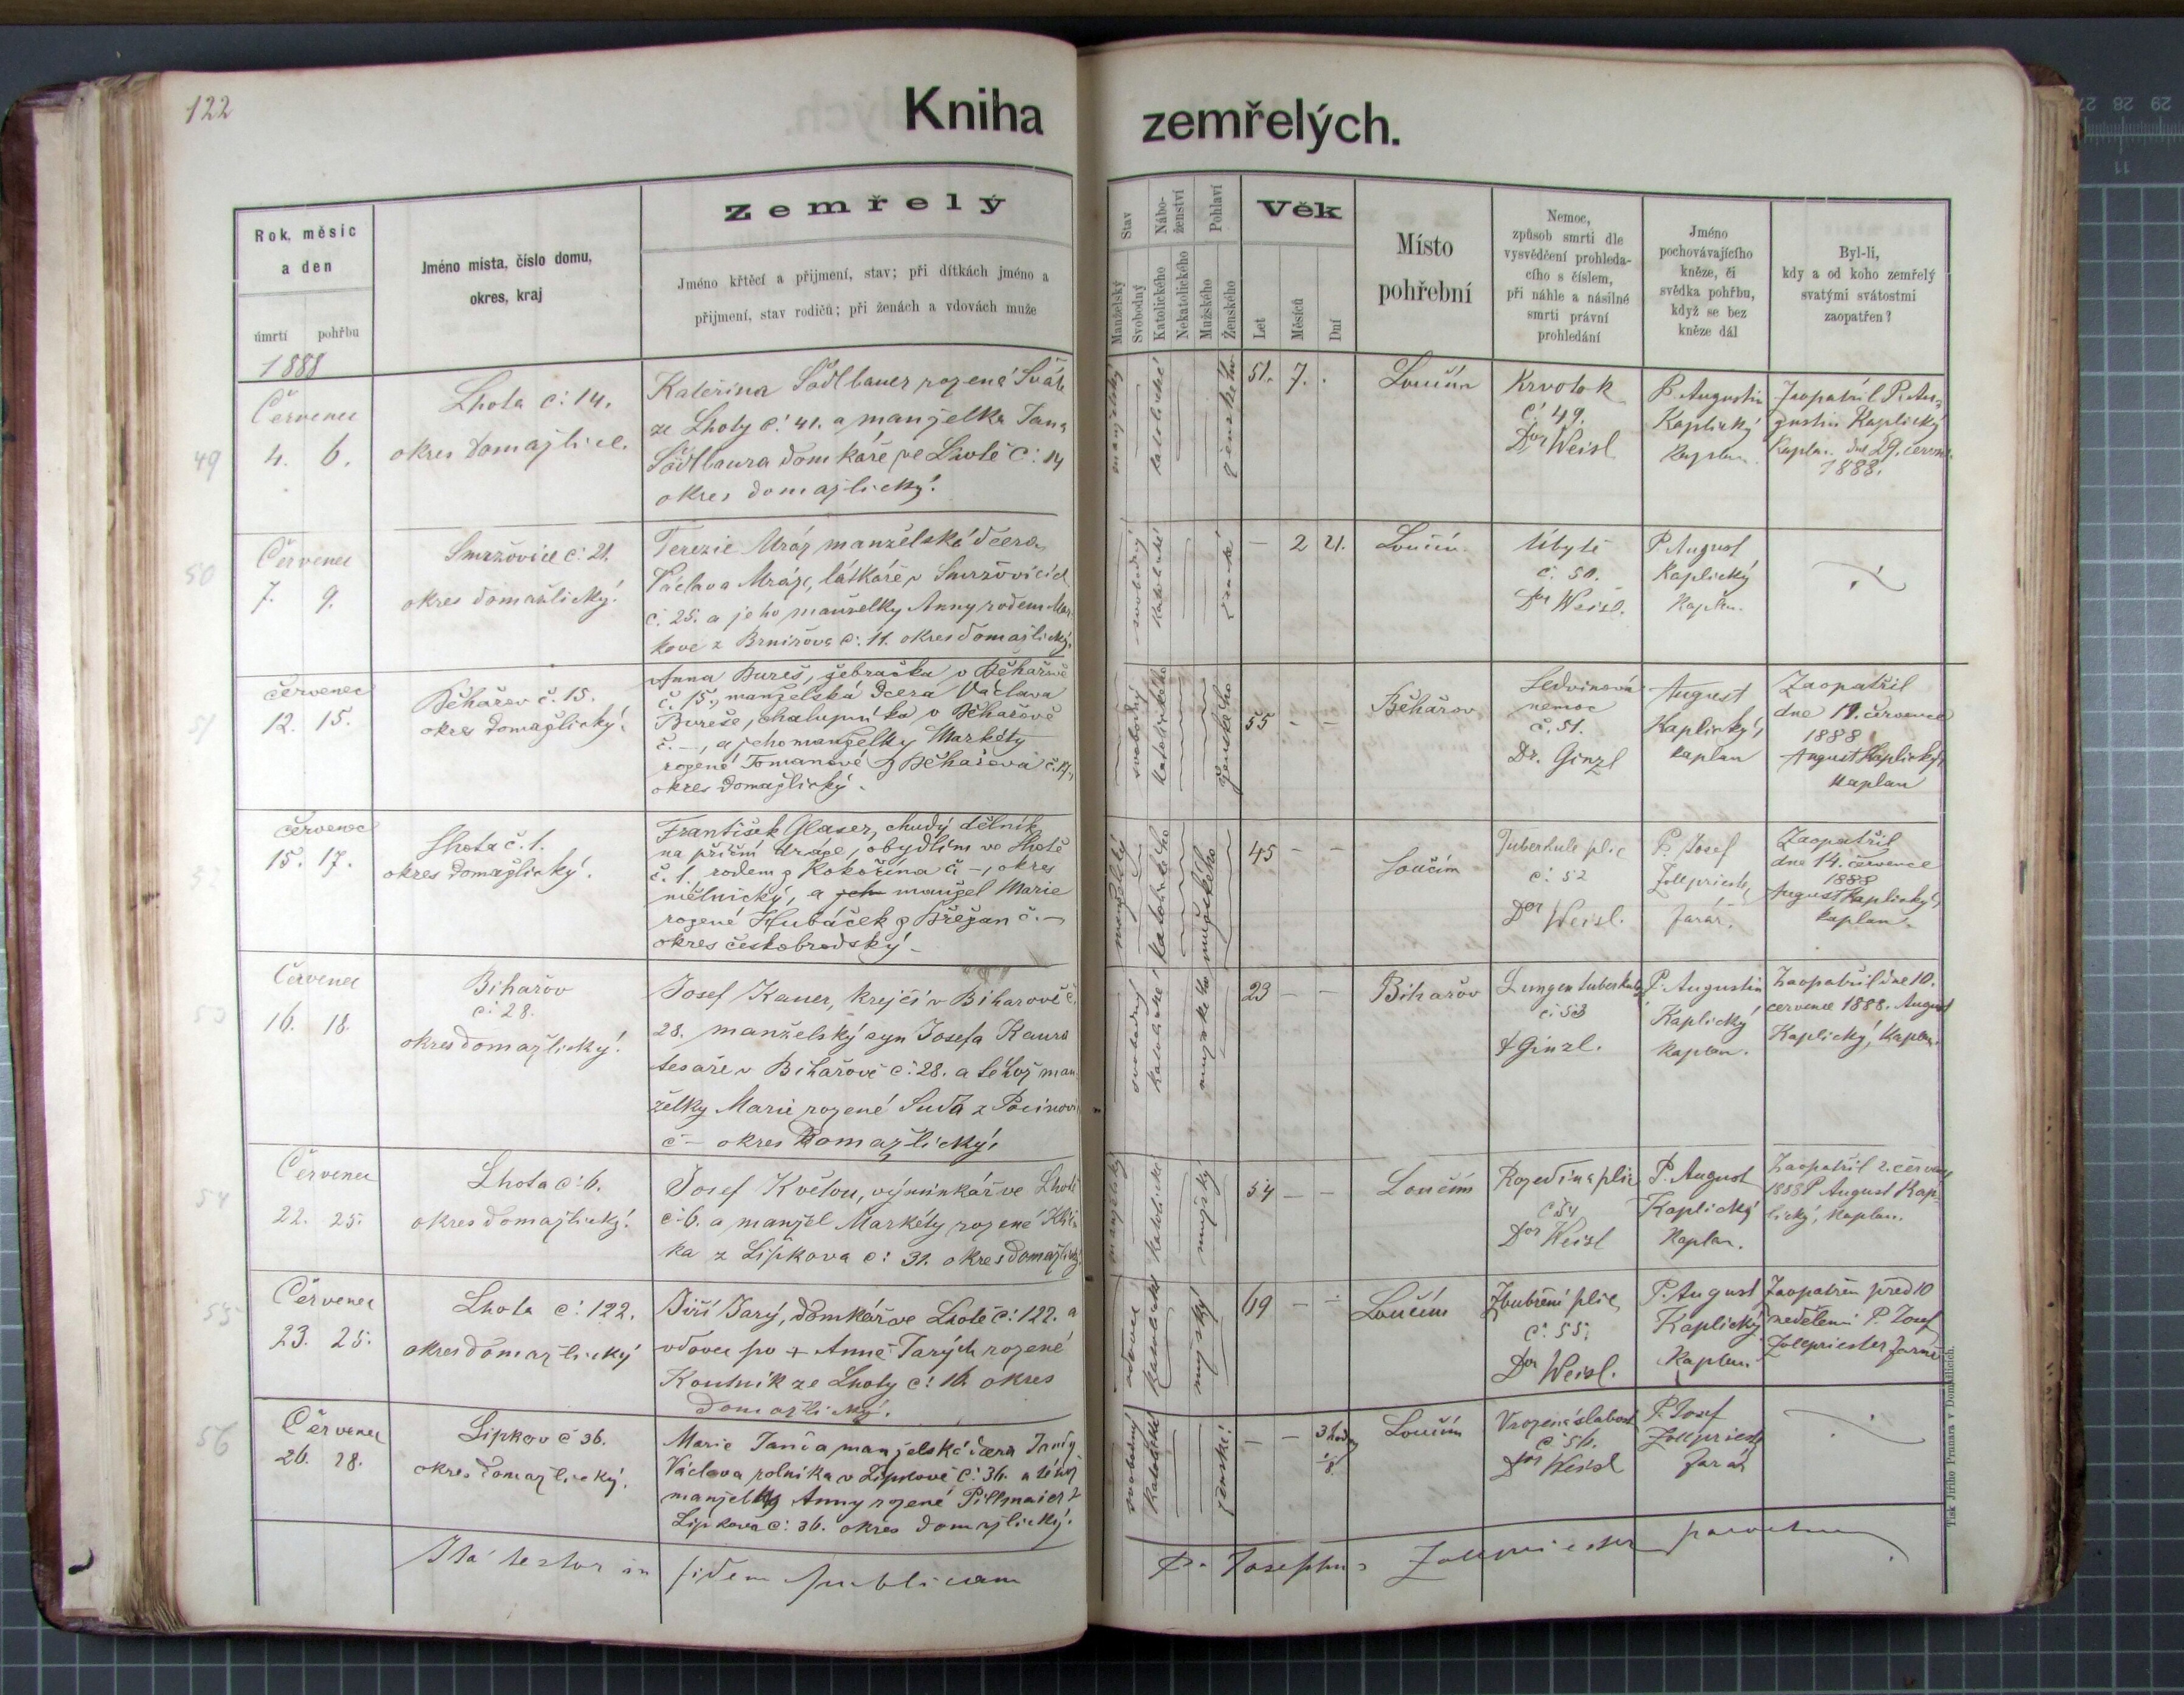 122
Kniha zemřelých.
Rok, měsíc
a den
úmrtí pohřbu
Jméno místa, číslo domu,
okres, kraj
Zemřelý
Jméno křtěcí a přijmení, stav; při dítkách jméno a
přijmení, stav rodičů; při ženách a vdovách muže
Stav
Manželský
Svobodný
Nábo-
ženství
Katolického
Nekatolického
Pohlaví
Mužského
Ženského
Věk
Let
Měsíců
Dní
Místo
pohřební
Nemoc,
způsob smrti dle
vysvědčení prohleda-
cího s číslem,
při náhle a násilné
smrti právní
prohledání
Jméno
pochovávajícího
kněze, či
svědka pohřbu,
když se bez
kněze dál
Byl-li,
kdy a od koho zemřelý
svatými svátostmi
zaopatřen?
1888
49
Červenec
4. 6.
Lhota č. 14.
okres Domažlice.
Kateřina Södlbauer rozená
ze Lhoty č. 41. a manželka Jana
Södlbaura domkáře ve Lhotě č. 14
okres domažlický.
manželský
katolické
ženského
51. 7. .
Loučim
Krvotok
č. 49.
Dor Weisl
P. Augustin
Kaplický
Kaplan.
Zaopatřil P. Au-
gustin Kaplický
Kaplan. dne 29. června
1888.
50
Červenec
7. 9.
Smržovice č. 21.
okres domažlický.
Terezie Mráz manželská dcera
Václava Mráze, látkáře v Smržovicích
č. 25. a jeho manželky Anny rodem Mar-
kove z Brnířova č. 11. okres domažlický.
svobodný
katolické
ženské
— 2 21.
Loučím.
Úbytě
č. 50.
Dor Weisl.
P. August
Kaplický
Kaplan.
51
červenec
12. 15.
Běhařov č. 15.
okres domažlický.
Anna Bureš, žebračka v Běhařově
č. 15, manželská dcera Václava
Bureše, chalupníka v Běhařově
č. –, a jeho manželky Markéty
rozené Tomanové z Běhařova č. 17,
okres domažlický.
svobodný
katolického
ženského
55 – –
Běhařov
Ledvinová
nemoc
č. 51.
Dr. Ginzl
August
Kaplický,
kaplan
Zaopatřil
dne 11. července
1888
August Kaplický,
kaplan
52
červenec
15. 17.
Lhota č. 1.
okres domažlický.
František Glaser, chudý dělník
na příční dráze, obydlím ve Lhotě
č. 1, rodem z Kokořína č –, okres
mělnický, a jeho manžel Marie
rozené Hubáček z Břežan č. –
okres českobrodský –
manželský
katolického
mužského
45 – –
Loučím
Tuberkule plic
č. 52
Dor Weisl.
P. Josef
Zollpriester,
farář.
Zaopatřil
dne 14. července
1888
August Kaplický,
kaplan.
53
Červenec
16. 18.
Bihařov
č. 28.
okres domažlický.
Josef Kauer, krejčí v Bihařově č.
28. manželský syn Josefa Kaura
tesaře v Bihařově č. 28. a téhož man-
želky Marie rozené Suda z Pocinovic
č – okres Domažlický.
svobodný
katolické
mužského
23 – –
Bihařov
Lungentuberkulos
č. 53
Dr Ginzl.
P. Augustin
Kaplický
Kaplan.
Zaopatřil dne 10.
července 1888. August
Kaplický, Kaplan.
54
Červenec
22. 25.
Lhota č. 6.
okres domažlický.
Josef Květon, výminkář ve Lhotě
č. 6. a manžel Markéty rozené
ka z Lipkova č. 31. okres domažlický
manželský
katolické
mužský
54 – –
Loučím
Rozedma plic
č 54
Dor Weisl
P. August
Kaplický
Kaplan.
Zaopatřil 2. července
1888 P August Kap-
lický, Kaplan.
55
Červenec
23. 25.
Lhota č. 122.
okres domažlický
Jiří Jarý, domkář ve Lhotě č. 122. a
vdovec po + Anně Jarých rozené
Koutník ze Lhoty č. 16. okres
domažlický.
vdovec
katolické
mužský
69 – –
Loučím
Zbubření plic
č. 55.
Dor Weisl.
P. August
Kaplický
Kaplan
Zaopatřen před 10
nedělemi P. Josef
Zollpriester farář
56
Červenec
26. 28.
Lipkov č 36.
okres domažlický.
Marie Janda manželská dcera Jandy
Václava rolníka v Lipkově č. 36. a téhož
manželky Anny rozené Pillmaier z
Lipkova č. 36. okres domažlický.
svobodný
katolické
ženské
– – 3 hodiny
Loučím
Vrozená slabost
č. 56.
Dor Weisl
P. Josef
Zollpriester
farář
Ita testor in fidem publicam
P. Josephus Zollpriester parochus
Tisk Jiřího Prunara v Domažlicích.